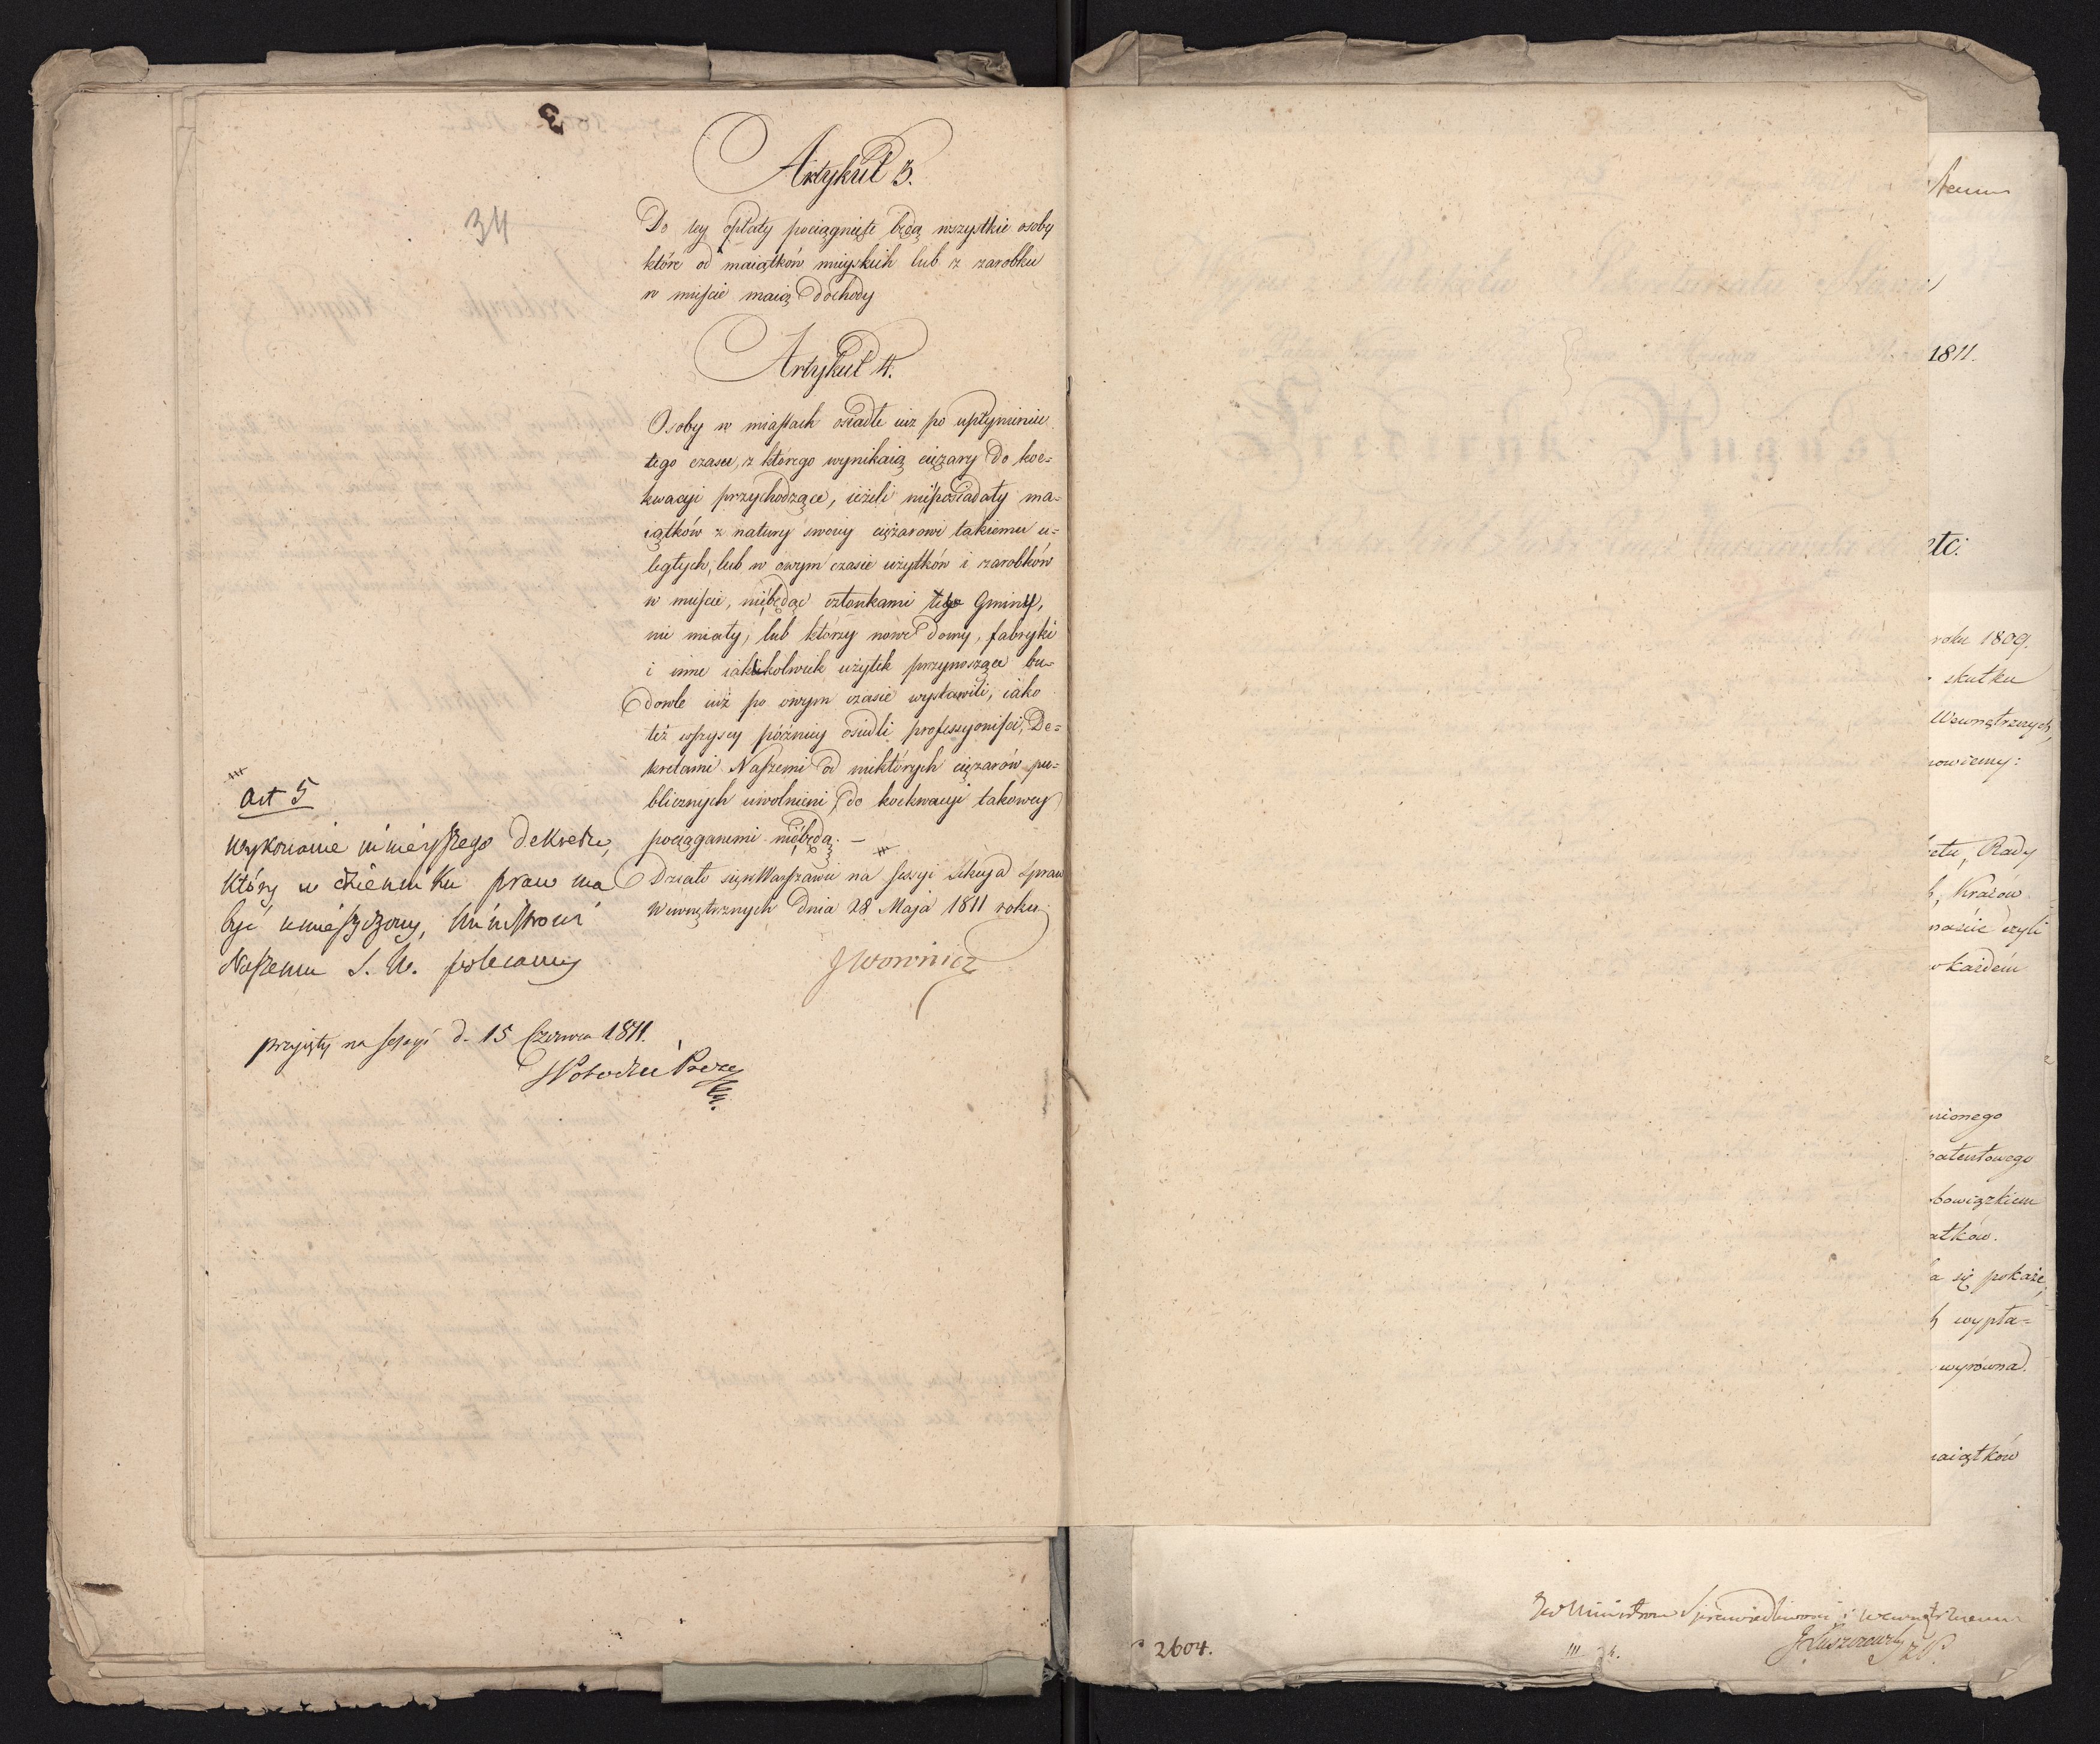 3
34
Artykuł 3.
Do tey opłaty pociągnięte będą wszystkie osoby
które od maiątków mieyskich lub z zarobku
w mieście maią dochody
Artykuł 4.
Osoby w miastach osiadłe iuż po upłynieniu
tego czasu, z którego wynikaią ciężary do koe-
kwacyi przychodzące, ieżeli nieposiadały ma-
iątków z natury swoiey ciężarowi takiemu u-
ległych, lub w owym czasie użytków i zarobków
w mieście, niebędąc członkami tey Gminy,
nie miały, lub którzy nowe domy, fabryki
i inne iakiekolwiek użytek przynoszące bu-
dowle iuż po owym czasie wystawili, iako
też wszyscy późniey osiedli professyoniści, De-
kretami Naszemi od niektórych ciężarów pu-
blicznych uwolnieni, do koekwacyi takowey
pociąganemi niebędą. —
Działo się w Warszawie na sessyi Sekcyi Spraw
Wewnętrznych dnia 28 Maja 1811 roku
J Woronicz
Art 5
Wykonanie ninieyszego dekretu,
który w dzienniku praw ma
być umieszczony, Ministrowi
Naszemu S. W. polecamy
przyięty na sessyi d. 15 Czerwca 1811.
1811.
etc.
roku 1809.
skutku
Wewnętrznych,
nowiemy:
Rady
Kraiów
czyli
w każdém
nionego
patentowego
bowiązkiem
atków.
a się pokaże,
wypła-
wyrówna.
maiątków
2604.
Ministrom Sprawiedliwości i Wewnętrznemu